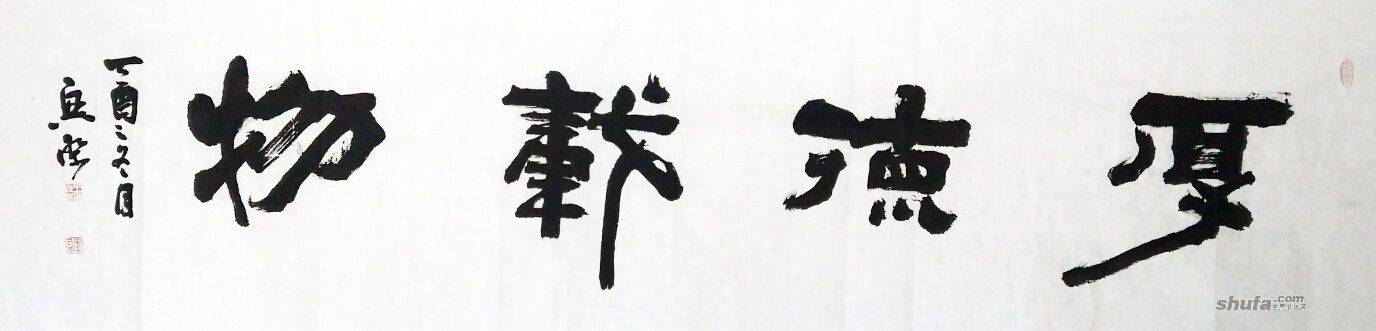 厚德载物
丁酉之冬月
shufa.com